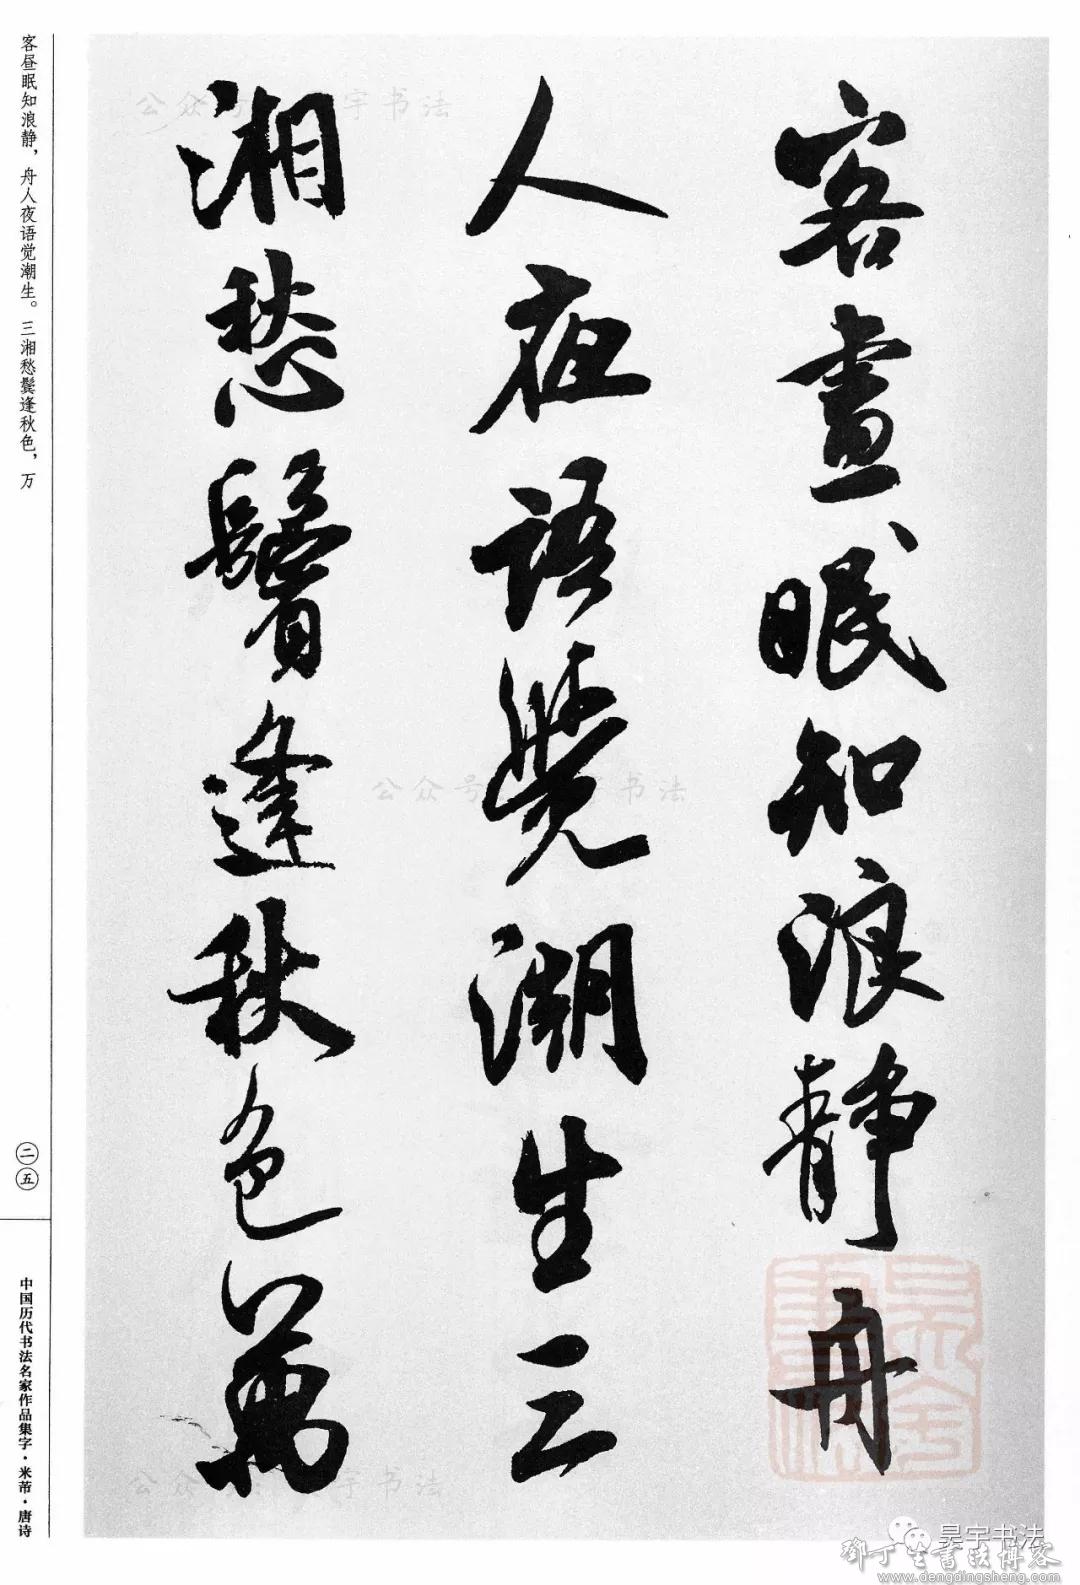 客晝眠知浪静舟
人夜语覺潮生三
湘愁鬓逢秋色萬
客昼眠知浪静，舟人夜语觉潮生。三湘愁鬓逢秋色，万
二五
中国历代书法名家作品集字·米芾·唐诗
公众号 宇书法
公众号 书法
公众号：宇书法
昊宇书法
鄧丁生書法博客
www.dengdingsheng.com